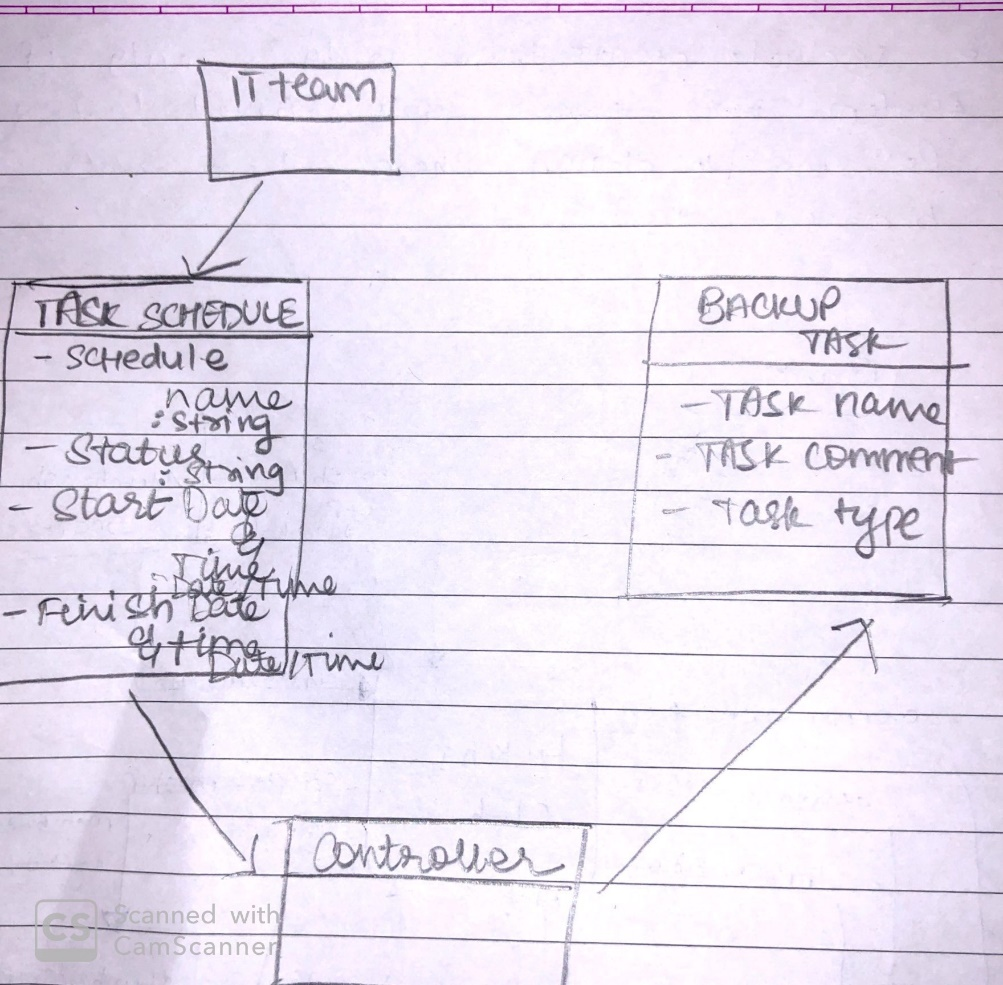 IT team
TASK SCHEDULE
- Schedule
name
: String
- Status
: String
- Start Date
&
Time
: Date/Time
- Finish Date
& time
Date/Time
BACKUP
TASK
- TASK name
- TASK comment
- Task type
Controller
CS Scanned with
CamScanner